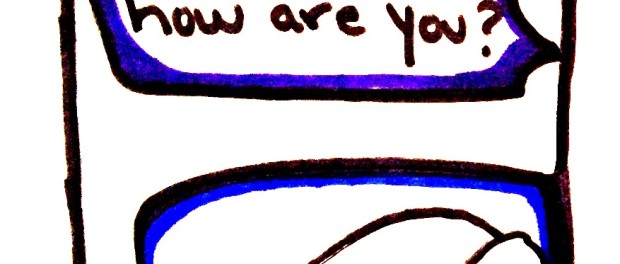 how are you?